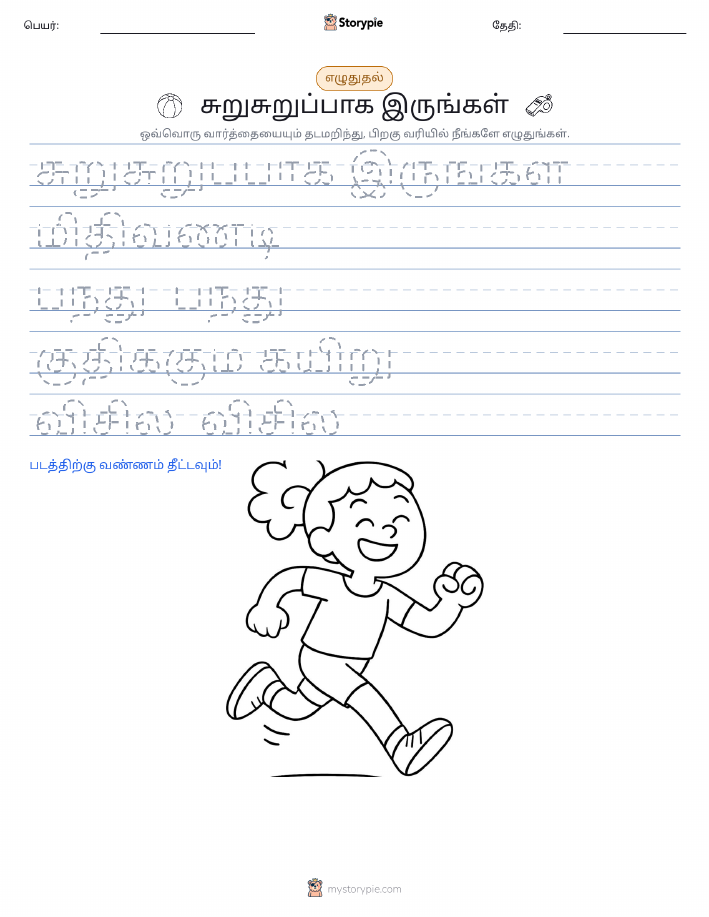 பெயர்:
Storypie
தேதி:
எழுதுதல்
சுறுசுறுப்பாக இருங்கள்
ஒவ்வொரு வார்த்தையையும் தடமறிந்து, பிறகு வரியில் நீங்களே எழுதுங்கள்.
சுறுசுறுபபாக இருஙகள
மிதிவணடி
பநது பநது
குதிககும கயிறு
விசில விசில
படத்திற்கு வண்ணம் தீட்டவும்!
mystorypie.com